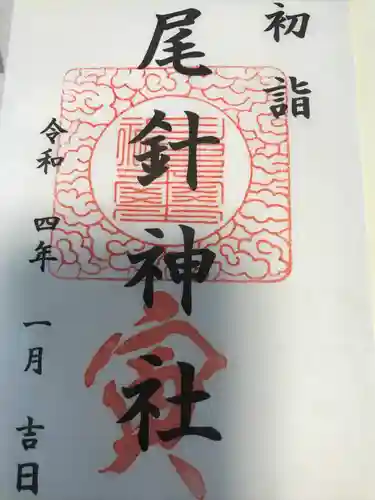 初詣
尾針神社
寅
令和 四年 一月 吉日